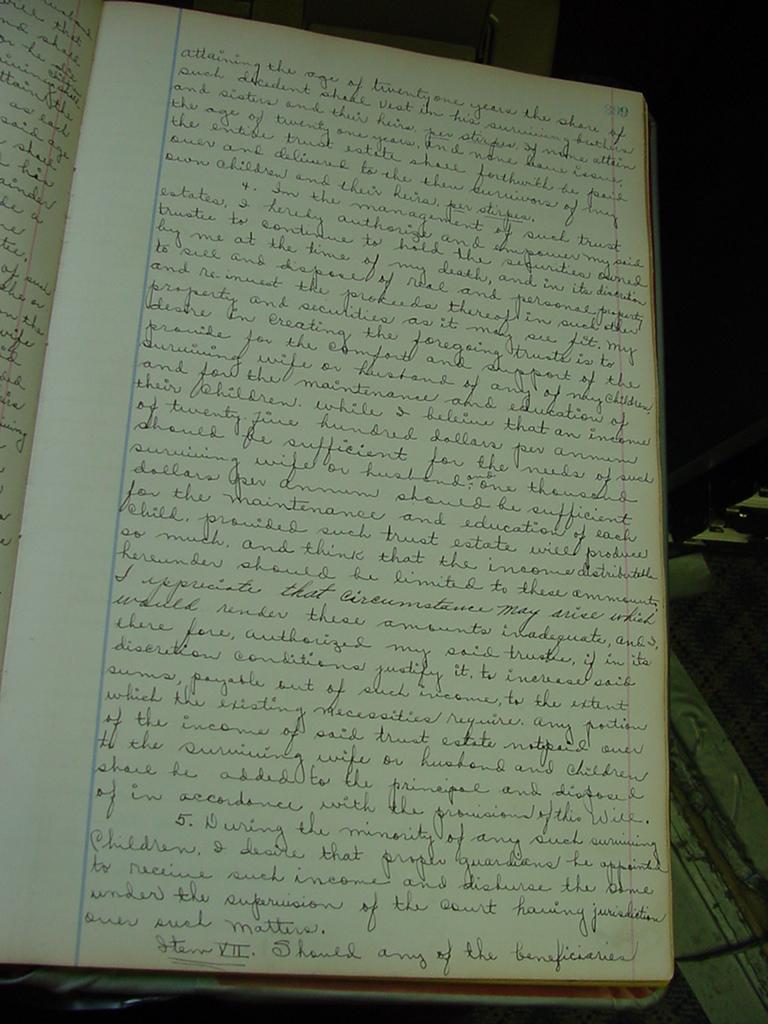 299
attaining the age of twenty one years the share of
such decedent shall vest in his surviving brothers
and sisters and their heirs, per stirpes. If none attain
the age of twenty one years, and none leave issue,
the entire trust estate shall forthwith be paid
over and delivered to the then survivors of my
own children and their heirs, per stirpes.
4. In the management of such trust
estates, I hereby authorize and empower my said
trustee to continue to hold the securities owned
by me at the time of my death, and in its discretion
to sell and dispose of real and personal property
and re-invest the proceeds thereof in such other
property and securities as it may see fit. My
desire in creating the foregoing trusts is to
provide for the comfort and support of the
surviving wife or husband of any of my children,
and for the maintenance and education of
their children. while I beleive that an income
of twenty-five hundred dollars per annum
should be sufficient for the needs of such
surviving wife or husband, and one thousand
dollars per annum should be sufficient
for the maintenance and education of each
child, provided such trust estate will produce
so much, and think that the income distributable
hereunder should be limited to these ammounts,
I appreciate that circumstance may arise which
would render these amounts inadequate, and I,
there fore, authorized my said trustee, if in its
discretion conditions justify it, to increase said
sums, payable out of such income, to the extent
which the existing necessities require. Any portion
of the income of said trust estate not paid over
to the surviving wife or husband and children
shall be added to the principal and disposed
of in accordance with the provisions of this Will.
5. During the minority of any such surviving
Children, I desire that proper guardians be appointed
to receive such income and disburse the same
under the supervision of the court having jurisdiction
over such matters.
Item VII. Should any of the beneficiaries